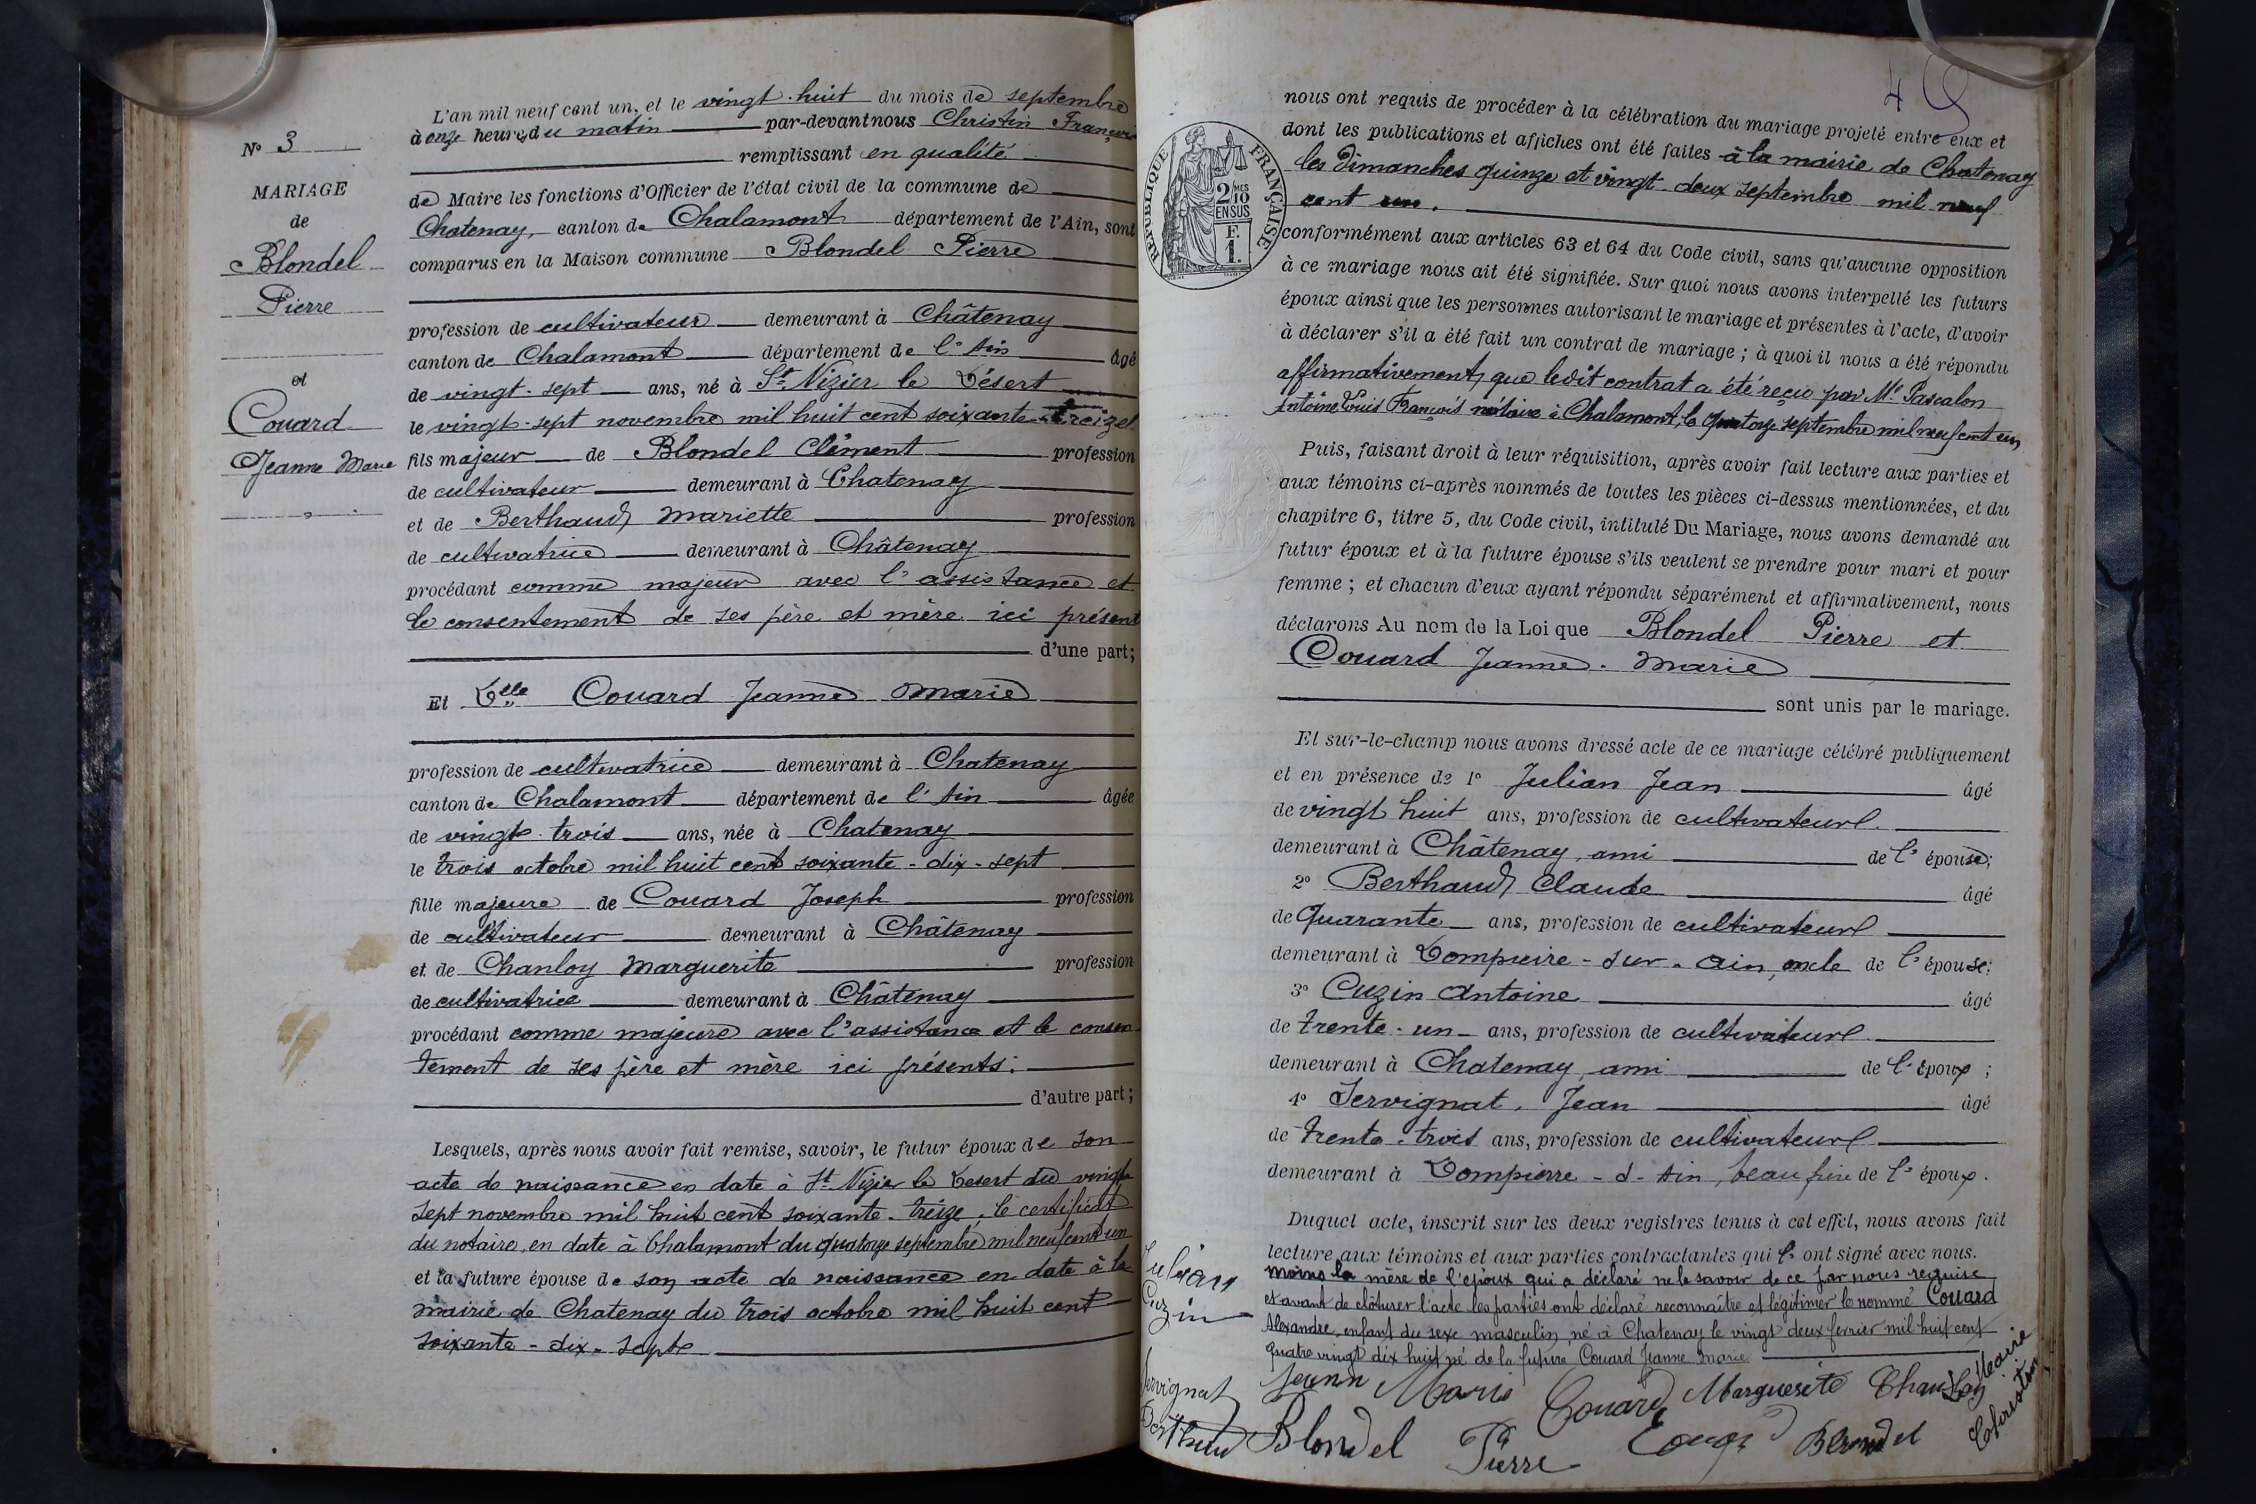 N° 3
MARIAGE
de
Blondel
Pierre
et
Couard
Jeanne Marie
L'an mil neuf cent un, et le vingt-huit du mois de septembre
à onze heures du matin par-devant nous Christin François
remplissant en qualité
de Maire les fonctions d'Officier de l'état civil de la commune de
Chatenay, canton de Chalamont département de l'Ain, sont
comparus en la Maison commune Blondel Pierre
profession de cultivateur demeurant à Châtenay
canton de Chalamont département de l'Ain âgé
de vingt-sept ans, né à St Nizier le Désert
le vingt-sept novembre mil huit cent soixante-treize
fils majeur de Blondel Clément profession
de cultivateur demeurant à Chatenay
et de Berthaud Mariette profession
de cultivatrice demeurant à Châtenay
procédant comme majeur avec l'assistance et
le consentement de ses père et mère ici présent
d'une part;
Et Delle Couard Jeanne Marie
profession de cultivatrice demeurant à Chatenay
canton de Chalamont département de l'Ain âgée
de vingt-trois ans, née à Chatenay
le trois octobre mil huit cent soixante-dix-sept
fille majeure de Couard Joseph profession
de cultivateur demeurant à Châtenay
et de Chanloy Marguerite profession
de cultivatrice demeurant à Châtenay
procédant comme majeure avec l'assistance et le consen-
tement de ses père et mère ici présents;
d'autre part;
Lesquels, après nous avoir fait remise, savoir, le futur époux de son
acte de naissance en date à St Nizier le Desert du vingt
sept novembre mil huit cent soixante-treize, le certificat
du notaire, en date à Chalamont du quatorze septembre mil neuf cent un
et la future épouse de son acte de naissance en date à la
mairie de Chatenay du trois octobre mil huit cent
soixante-dix-sept
49
RÉPUBLIQUE FRANÇAISE
2/10 MES
EN SUS
F.
1.
nous ont requis de procéder à la célébration du mariage projeté entre eux et
dont les publications et affiches ont été faites à la mairie de Chatenay
les Dimanches quinze et vingt-deux septembre mil neuf
cent un.
conformément aux articles 63 et 64 du Code civil, sans qu'aucune opposition
à ce mariage nous ait été signifiée. Sur quoi nous avons interpellé les futurs
époux ainsi que les personnes autorisant le mariage et présentes à l'acte, d'avoir
à déclarer s'il a été fait un contrat de mariage ; à quoi il nous a été répondu
affirmativement, que ledit contrat a été reçu par Me Pascalon
Antoine Louis François notaire à Chalamont, le quatorze septembre mil neuf cent un,
Puis, faisant droit à leur réquisition, après avoir fait lecture aux parties et
aux témoins ci-après nommés de toutes les pièces ci-dessus mentionnées, et du
chapitre 6, titre 5, du Code civil, intitulé Du Mariage, nous avons demandé au
futur époux et à la future épouse s'ils veulent se prendre pour mari et pour
femme ; et chacun d'eux ayant répondu séparément et affirmativement, nous
déclarons Au nom de la Loi que Blondel Pierre et
Couard Jeanne-Marie
sont unis par le mariage.
Et sur-le-champ nous avons dressé acte de ce mariage célébré publiquement
et en présence de 1° Julian Jean âgé
de vingt huit ans, profession de cultivateur
demeurant à Châtenay, ami de l'épouse;
2° Berthaud Claude âgé
de Quarante ans, profession de cultivateur
demeurant à Dompierre-sur-Ain, oncle de l'épouse;
3° Cuzin Antoine âgé
de trente-un ans, profession de cultivateur
demeurant à Chatenay, ami de l'époux ;
4° Servignat, Jean âgé
de trente-trois ans, profession de cultivateur
demeurant à Dompierre-d-Ain, beau frère de l'époux.
Duquel acte, inscrit sur les deux registres tenus à cet effet, nous avons fait
lecture aux témoins et aux parties contractantes qui ont signé avec nous.
moins la mère de l'époux qui a déclaré ne le savoir de ce par nous requise
et avant de clôturer l'acte les parties ont déclaré reconnaître et légitimer le nommé Couard
Alexandre, enfant du sexe masculin né à Chatenay le vingt deux fevrier mil huit cent
quatre vingt dix huit né de la future Couard Jeanne Marie
Julian
Cuzin
Servignat
Berthaud
Jeann Marie Couard Marguerite Chanloy
Blondel Pierre Couard Blondel
Maire
Christin